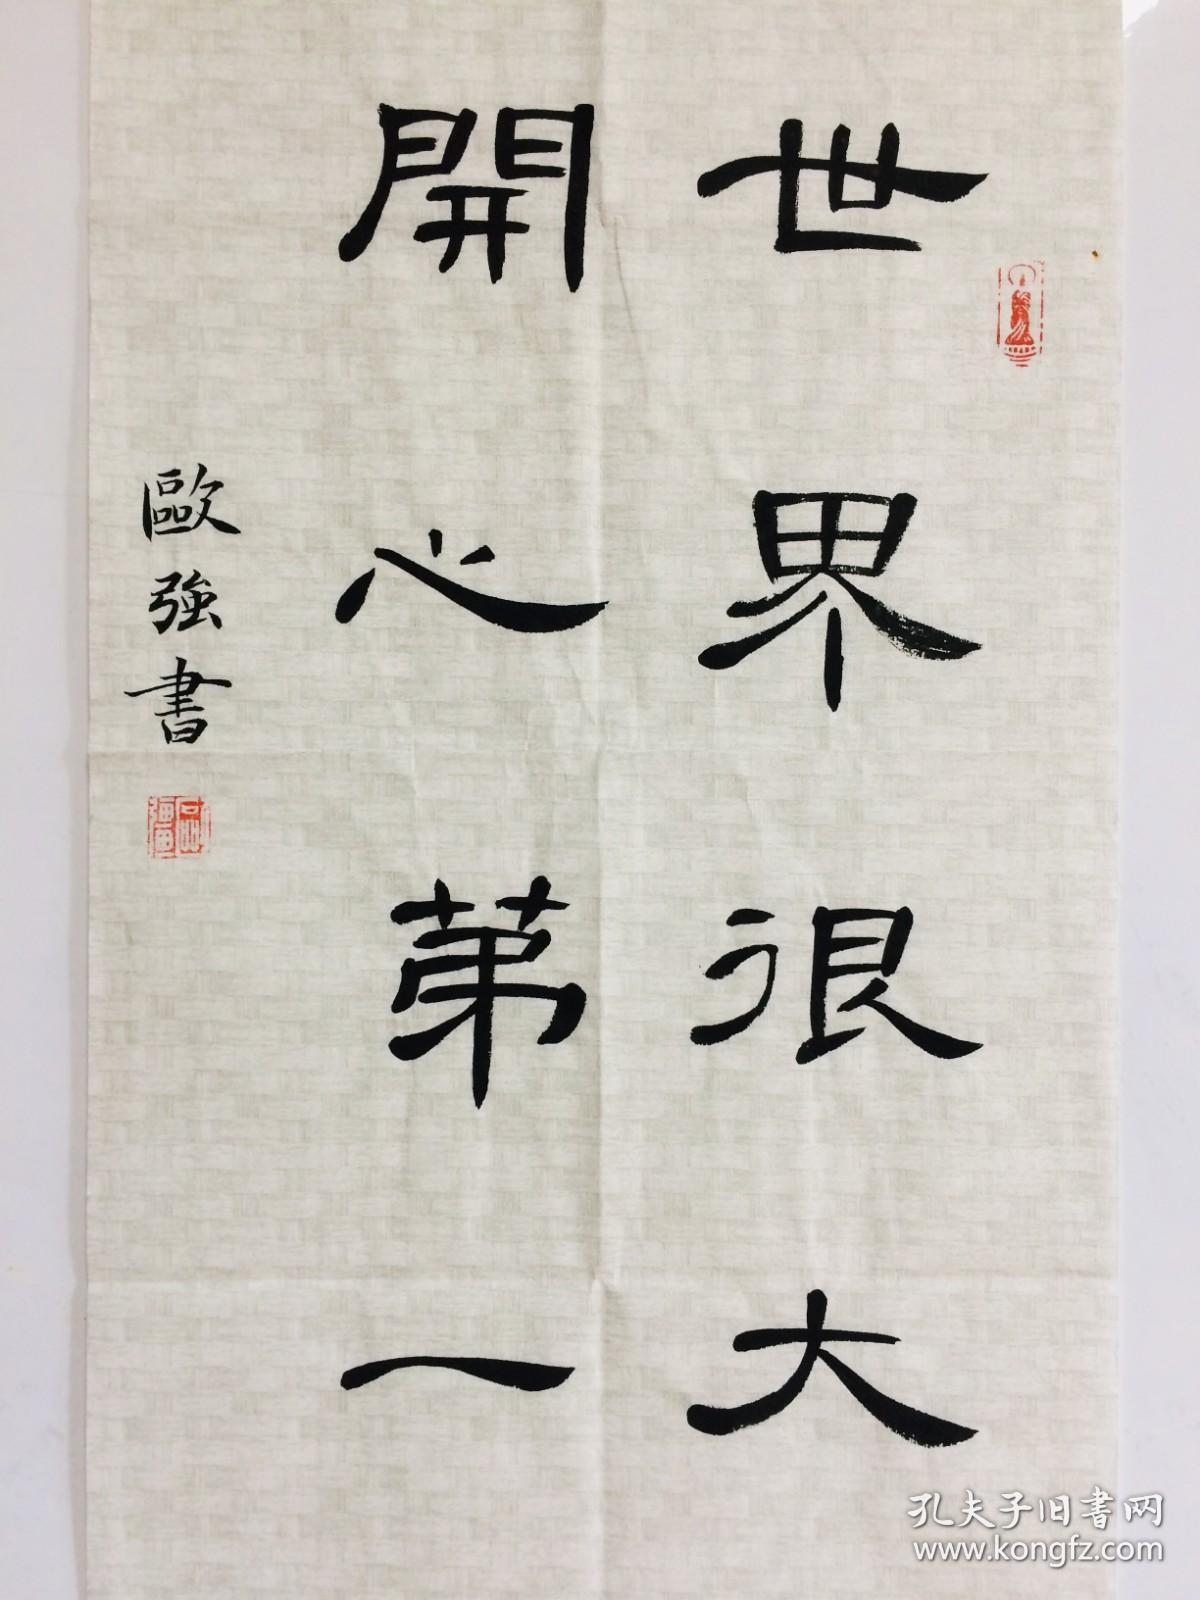 世界很大
開心第一
歐強書
孔夫子旧书网
www.kongfz.com